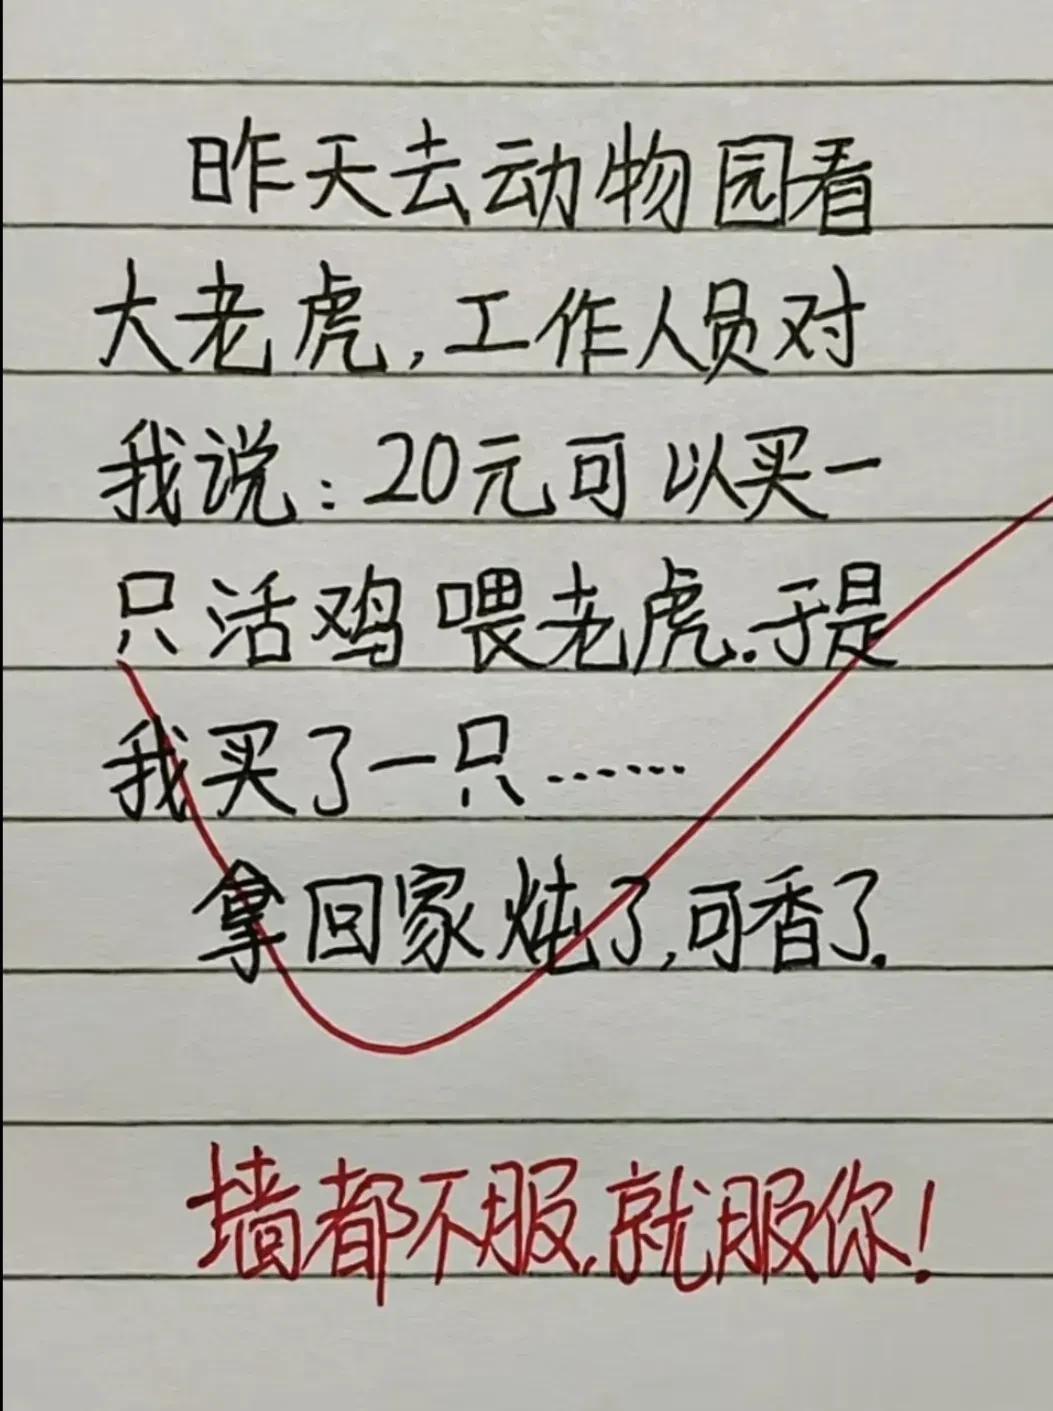 昨天去动物园看
大老虎,工作人员对
我说:20元可以买一
只活鸡喂老虎.于是
我买了一只……
拿回家炖了,可香了.
墙都不服,就服你!